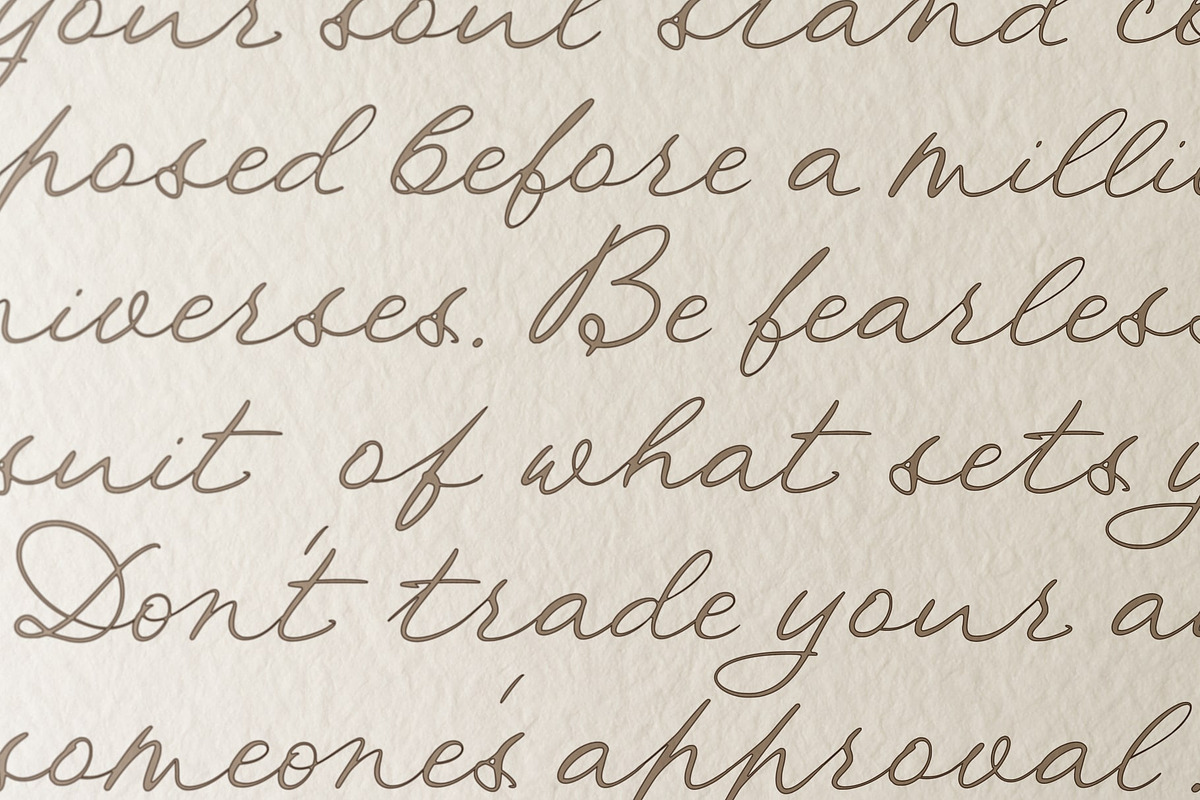 your soul stand co
posed before a millio
niverses. Be fearless
suit of what sets y
Don't trade your au
someone's approval.